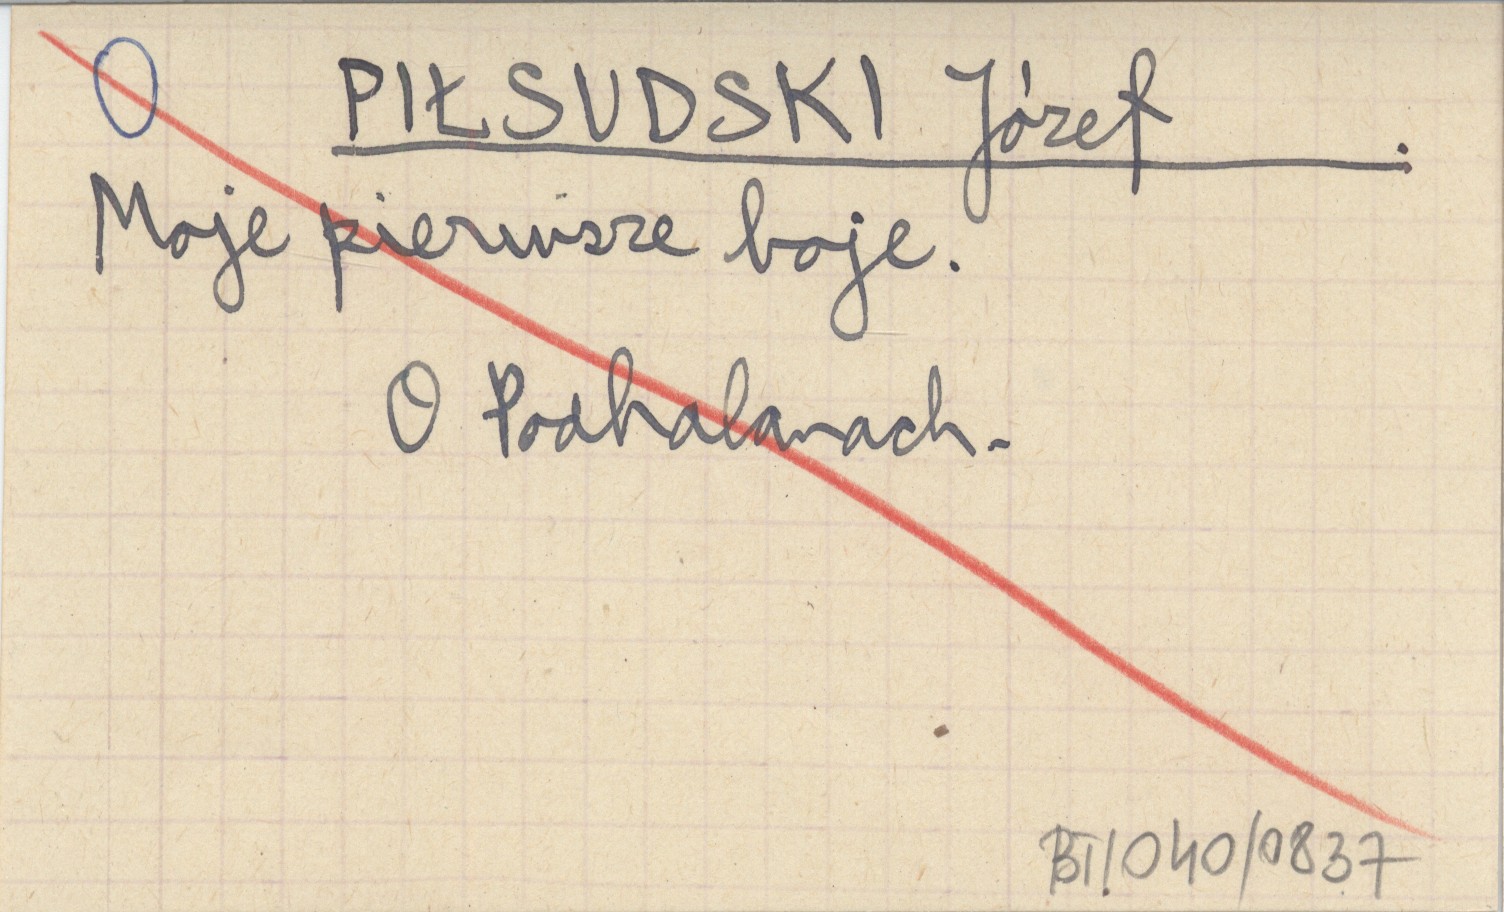 O PIŁSUDSKI Józef .
Moje pierwsze boje.
O Podhalanach.
BT/040/0837